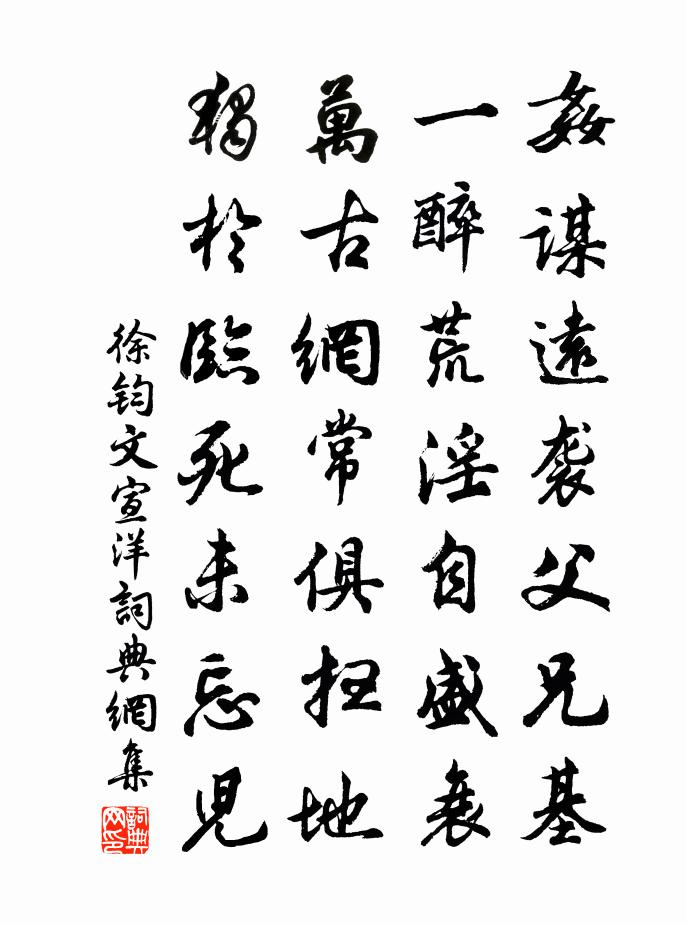 姦謀遠袭父兄基
一醉荒淫自盛衰
萬古網常俱扫地
獨於臨死未忘児
徐鈞文宣洋詞典網集
詞典网印